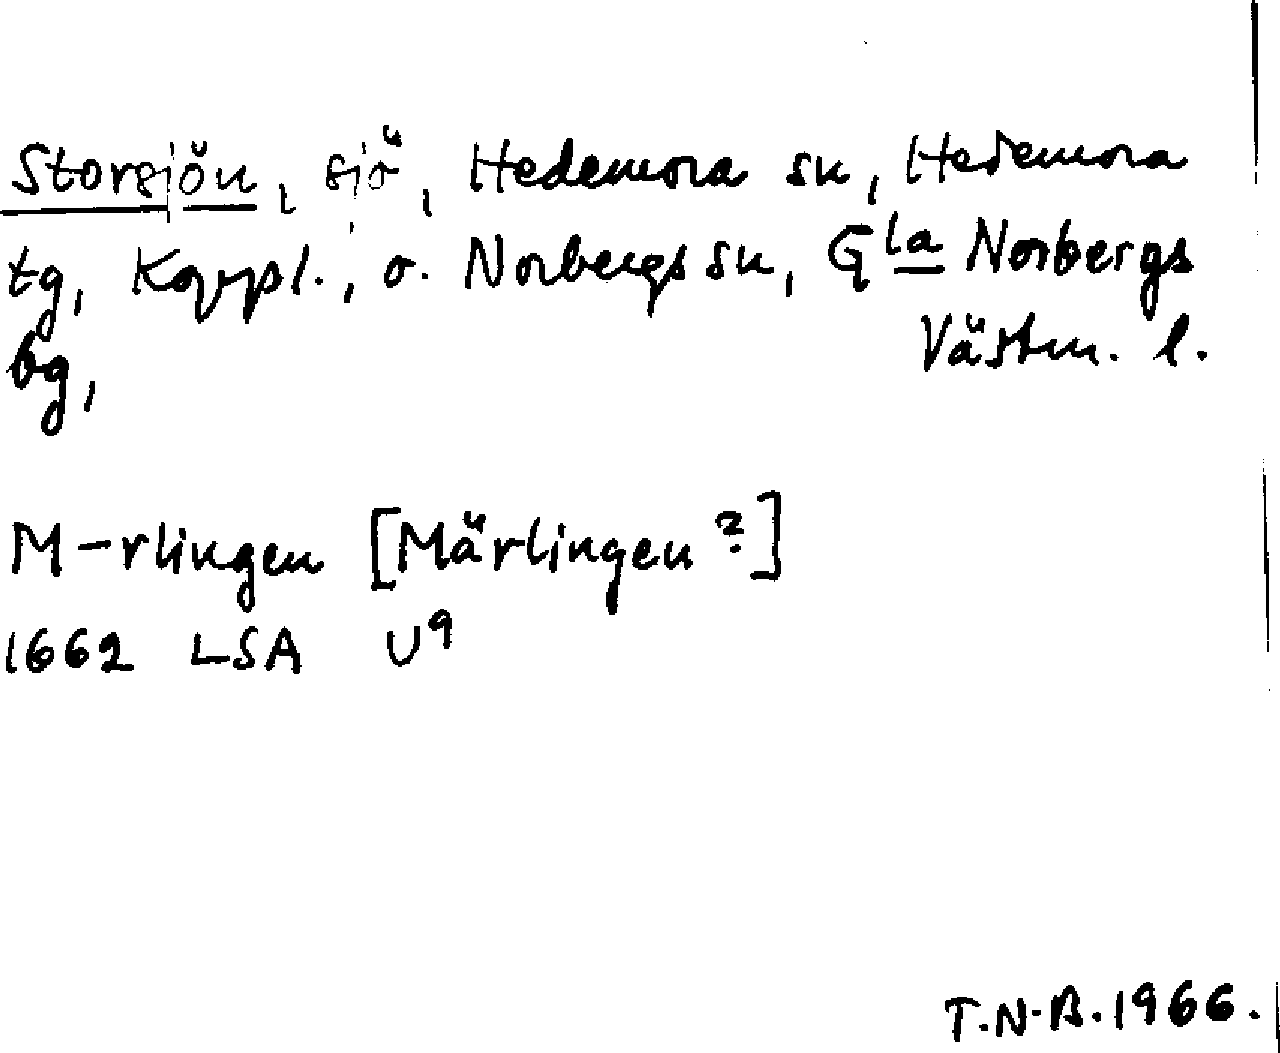 Storsjön, sjö, Hedemora sn, Hedemora
tg, Koppl., o. Norbergs sn, Gla Norbergs
bg, Västm. l.
M-rlingen [Märlingen?]
1662 LSA U9
T.N.B. 1966.